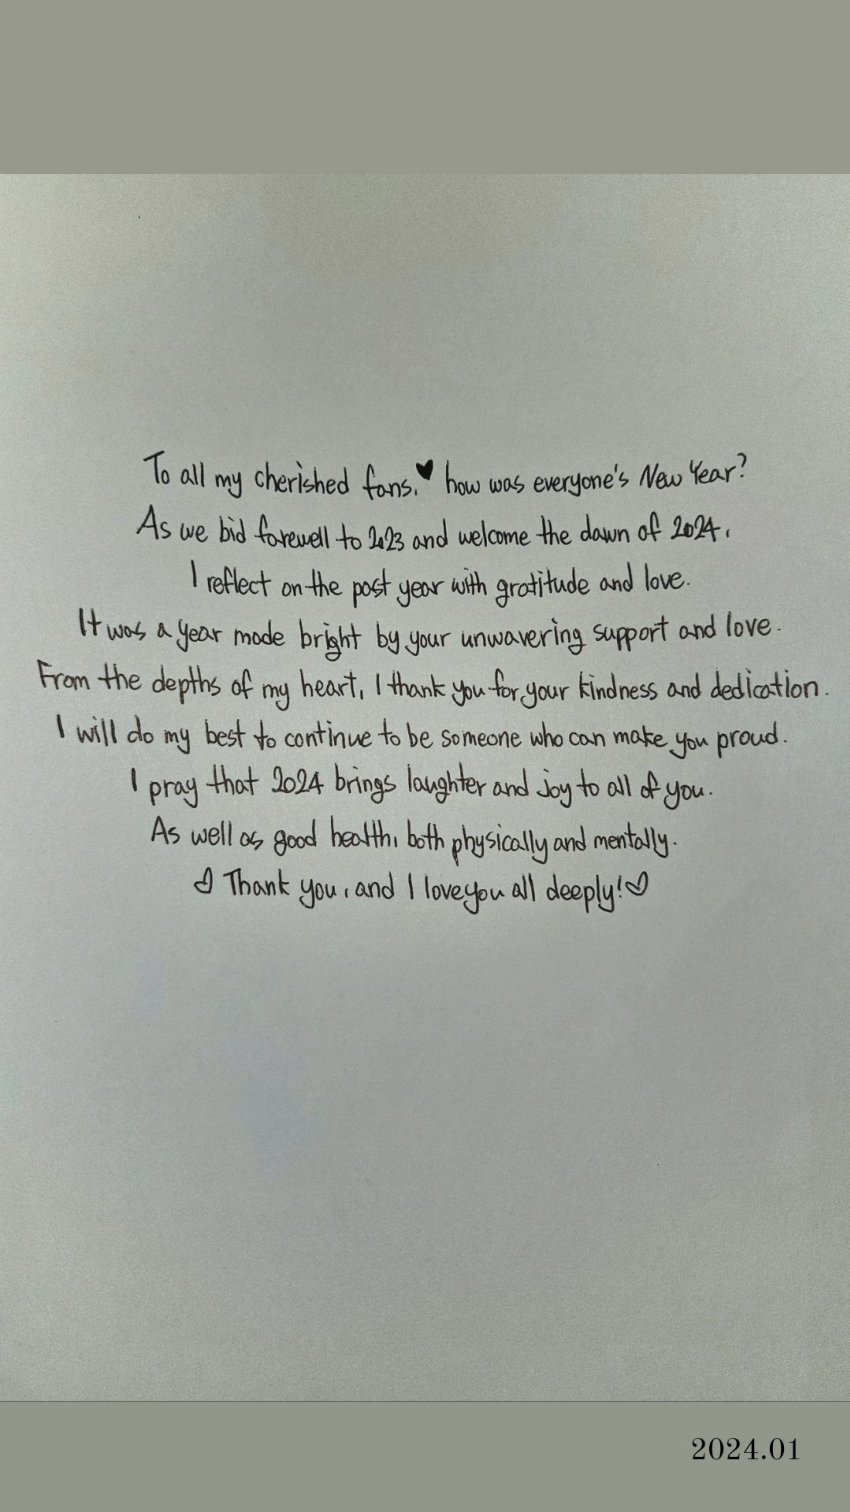 To all my cherished fans.♥ how was everyone's New Year?
As we bid farewell to 2023 and welcome the dawn of 2024,
I reflect on the past year with gratitude and love.
It was a year made bright by your unwavering support and love.
From the depths of my heart, I thank you for your kindness and dedication.
I will do my best to continue to be someone who can make you proud.
I pray that 2024 brings laughter and joy to all of you.
As well as good health, both physically and mentally.
♡ Thank you, and I love you all deeply!♡
2024.01